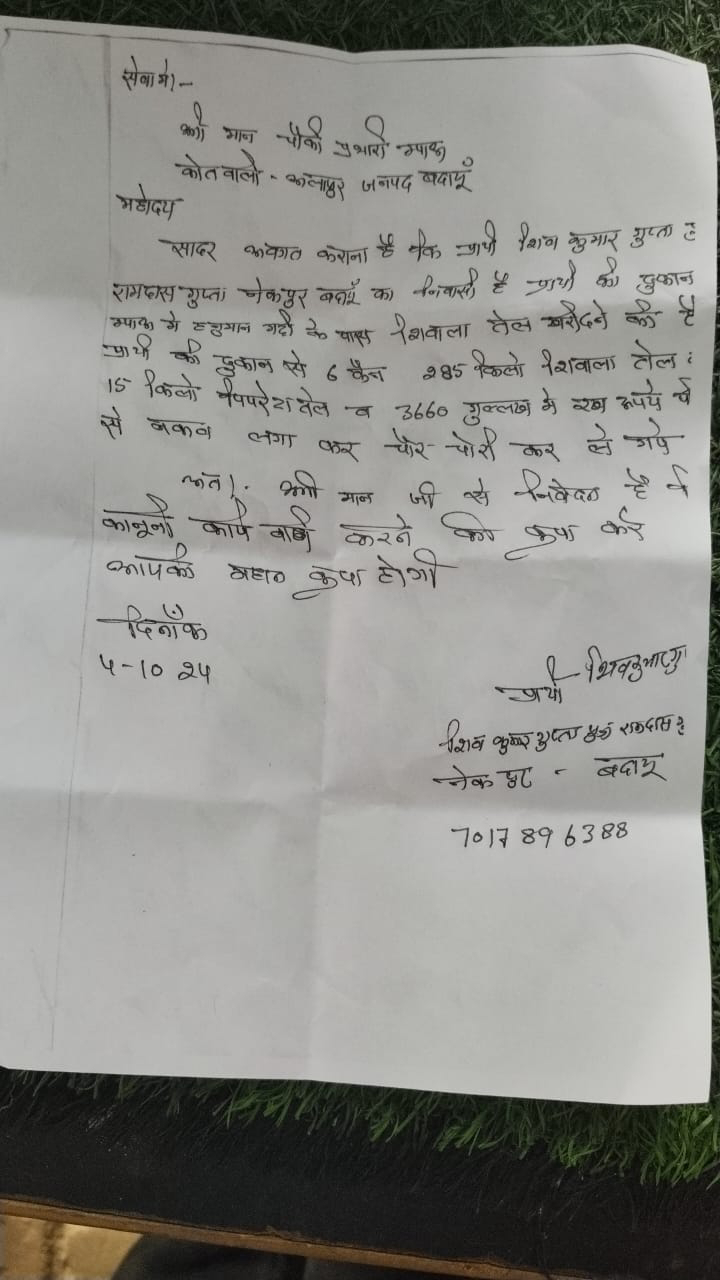 सेवा मे।-
श्री मान चौकी प्रभारी म्याऊ
कोतवाली - अलापुर जनपद बदायूँ
महोदय
सादर अवगत कराना है कि प्रार्थी शिव कुमार गुप्ता
रामदास गुप्ता नेकपुर बदायूँ का निवासी है प्रार्थी की दुकान
म्याऊ मे हनुमान गढी के पास पेशवाला तेल खरीदने की है
प्रार्थी की दुकान से 6 कैन 285 किलो पेशवाला तेल
15 किलो पिपरेटा तेल व 3660 गुल्लख मे रखे रूपये
से नकव लगा कर चोर चोरी कर ले गये
अत। श्री मान जी से निवेदन है
कानूनी कार्य वाही करने की कृपा करे
आपकी महान कृपा होगी
दिनाँक
4-10 24
प्रार्थी शिवकुमार गु
शिव कुमार गुप्ता पुत्र रामदास
नेकपुर - बदायूं
7017896388